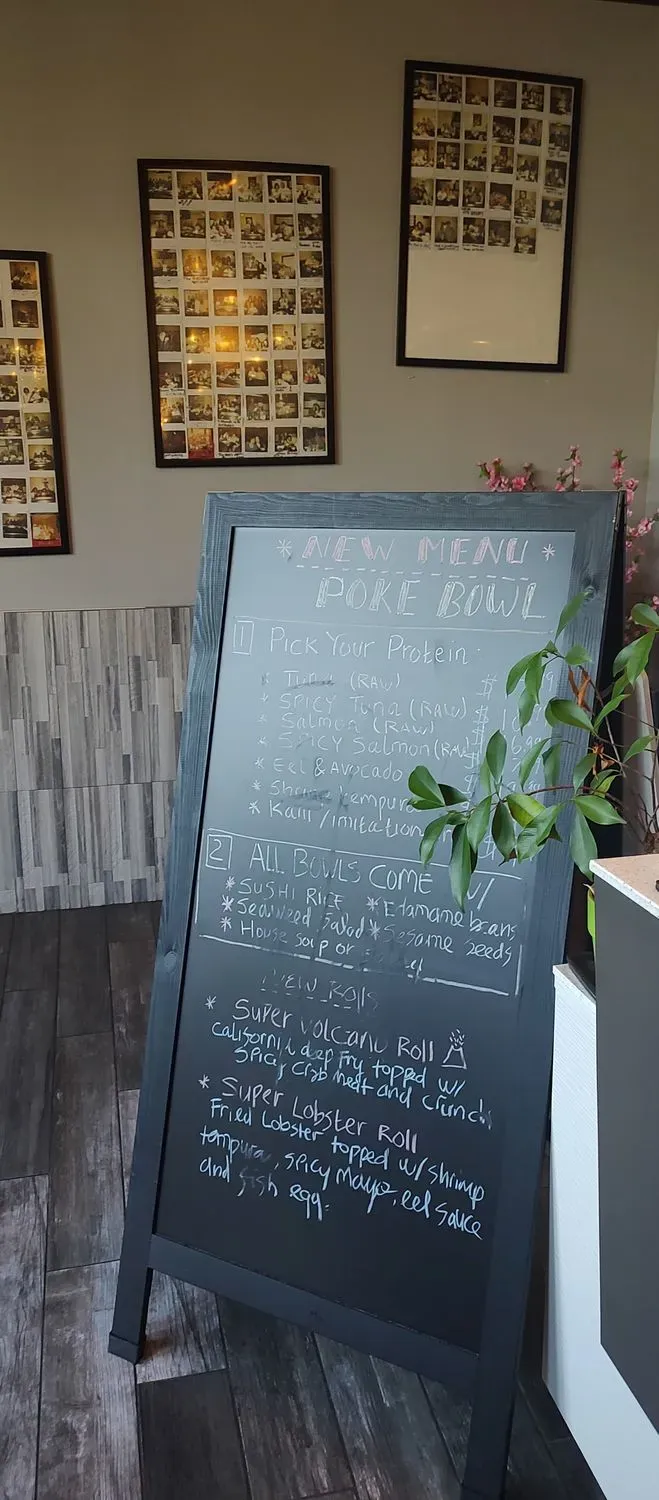 * NEW MENU *
POKE BOWL
1 Pick Your Protein:
* Tuna (RAW) $
* SPICY Tuna (RAW) $
* Salmon (RAW)
* SPICY Salmon (RAW)
* Eel & Avocado
* tempura
* Kani /imitation
2 ALL BOWLS COME W/
* SUSHI RICE * Edamame beans
* Seaweed Salad * Sesame Seeds
* House soup or
NEW Rolls
* Super Volcano Roll
California deep Fry topped w/
Spicy Crab meat and crunch
* Super Lobster Roll
Fried Lobster topped w/ shrimp
tempura, spicy Mayo, eel sauce
and fish egg.